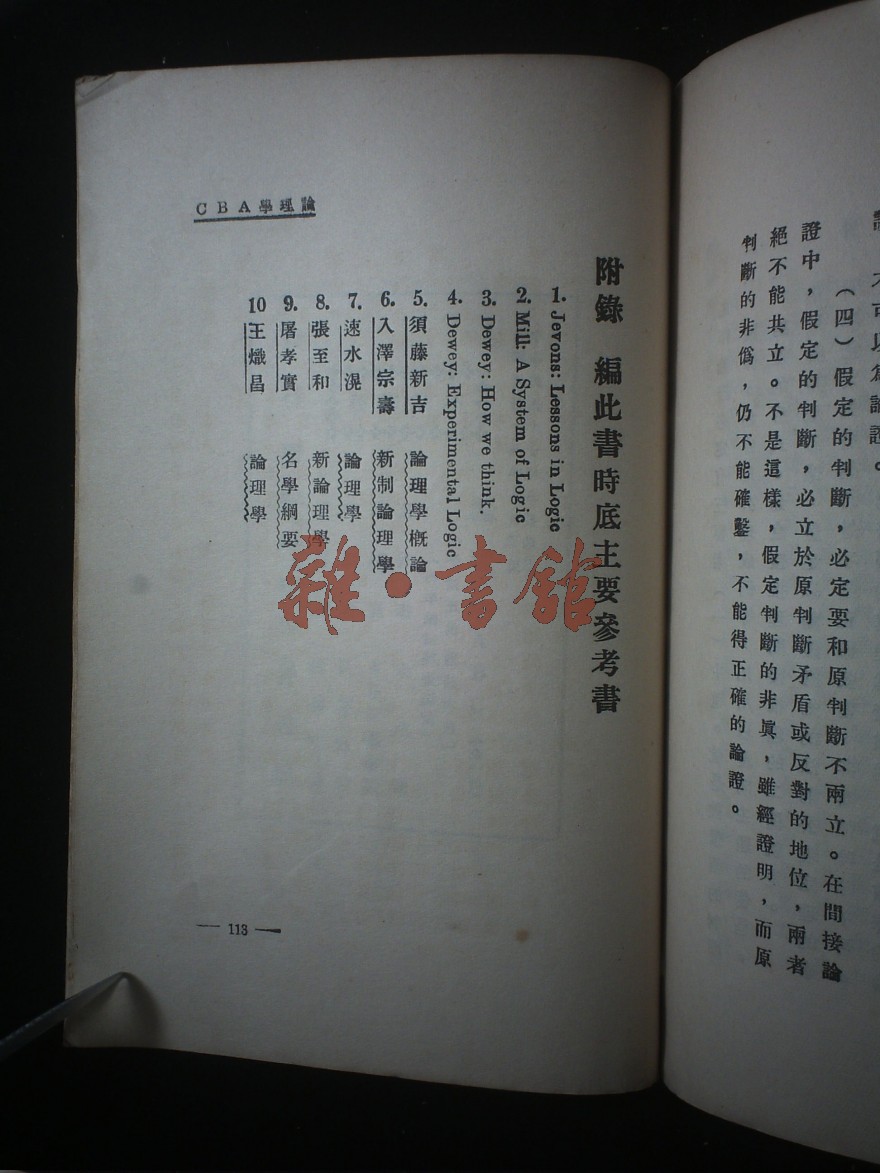 可以為論證。
(四)假定的判斷,必定要和原判斷不兩立。在間接論
證中,假定的判斷,必立於原判斷矛盾或反對的地位,兩者
絕不能共立。不是這樣,假定判斷的非眞,雖經證明,而原
判斷的非僞,仍不能確鑿,不能得正確的論證。
CBA學理論
附錄 編此書時底主要參考書
1. Jevons: Lessons in Logic
2. Mill: A System of Logic
3. Dewey: How we think.
4. Dewey: Experimental Logic
5. 須藤新吉 論理學概論
6. 入澤宗壽 新制論理學
7. 速水滉 論理學
8. 張至和 新論理學
9. 屠孝實 名學綱要
10 王熾昌 論理學
113
雜·書館